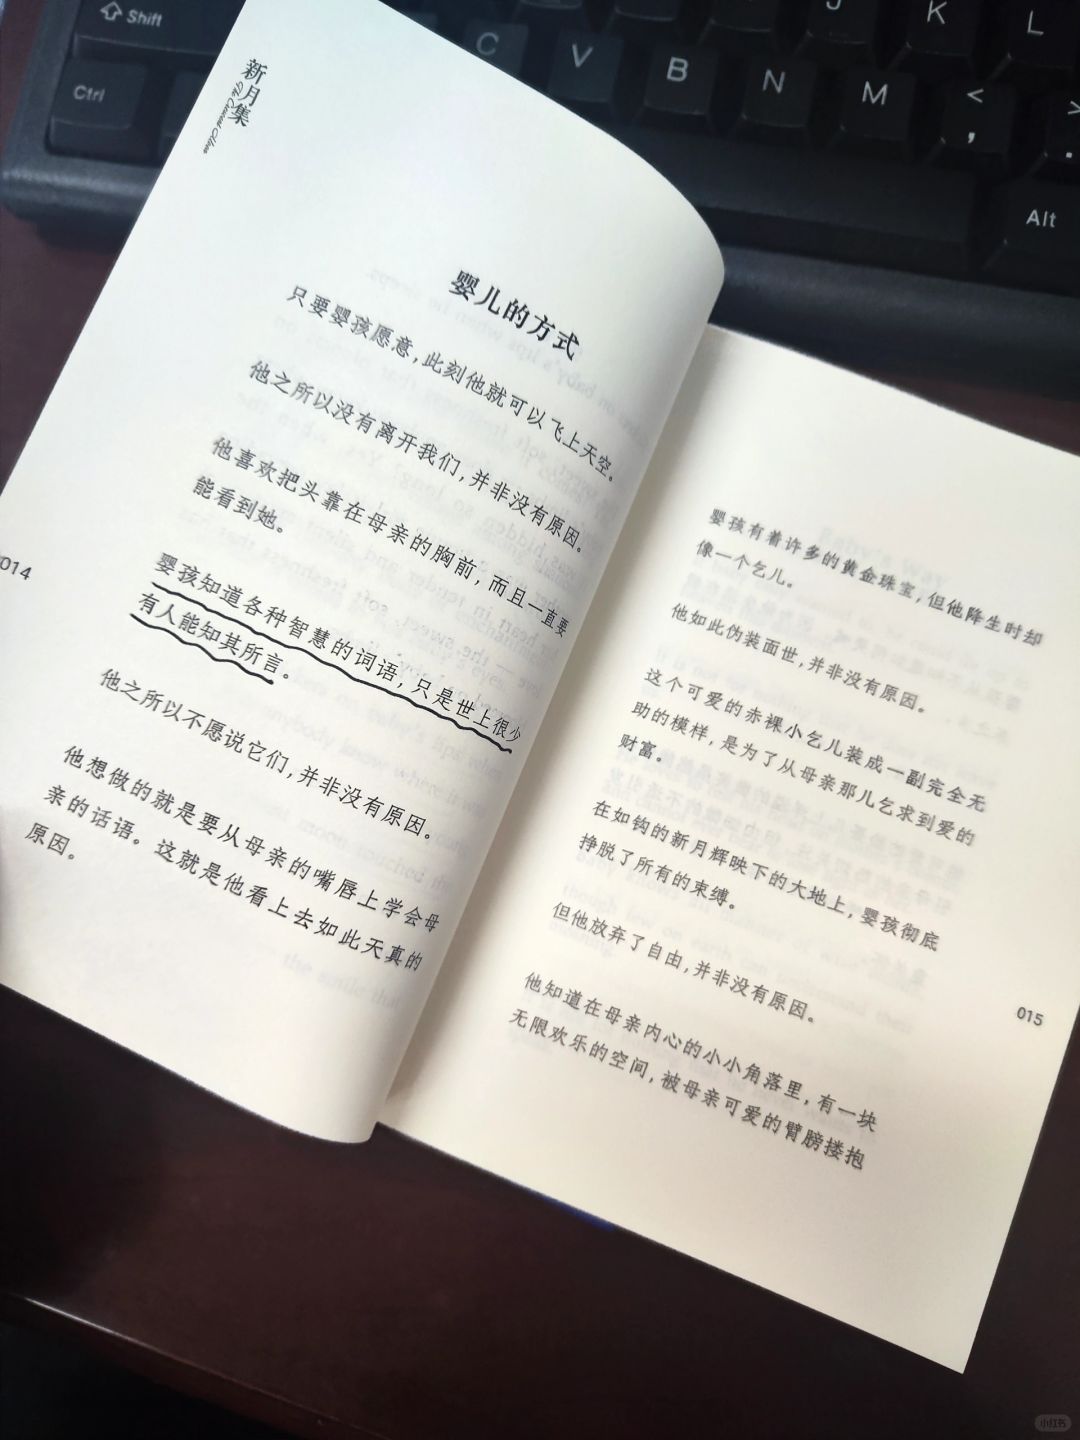 Shift
Ctrl
C
V
B
N
M
<
,
>
.
J
K
L
Alt
新月集
婴儿的方式
只要婴孩愿意，此刻他就可以飞上天空。
他之所以没有离开我们，并非没有原因。
他喜欢把头靠在母亲的胸前，而且一直要
能看到她。
婴孩知道各种智慧的词语，只是世上很少
有人能知其所言。
他之所以不愿说它们，并非没有原因。
他想做的就是要从母亲的嘴唇上学会母
亲的话语。这就是他看上去如此天真的
原因。
014
婴孩有着许多的黄金珠宝，但他降生时却
像一个乞儿。
他如此伪装面世，并非没有原因。
这个可爱的赤裸小乞儿装成一副完全无
助的模样，是为了从母亲那儿乞求到爱的
财富。
在如钩的新月辉映下的大地上，婴孩彻底
挣脱了所有的束缚。
但他放弃了自由，并非没有原因。
他知道在母亲内心的小小角落里，有一块
无限欢乐的空间，被母亲可爱的臂膀搂抱
015
小红书